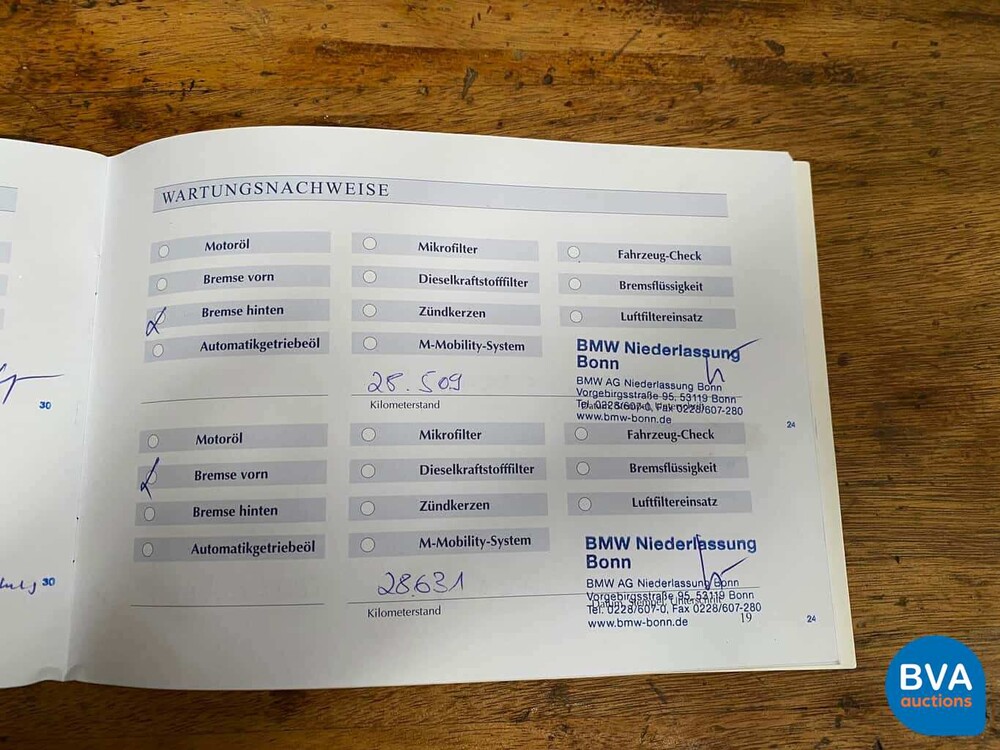 WARTUNGSNACHWEISE
Motoröl Mikrofilter Fahrzeug-Check
Bremse vorn Dieselkraftstofffilter Bremsflüssigkeit
Bremse hinten Zündkerzen Luftfiltereinsatz
Automatikgetriebeöl M-Mobility-System
BMW Niederlassung
Bonn
BMW AG Niederlassung Bonn
Vorgebirgsstraße 95, 53119 Bonn
Tel. 0228/607-0, Fax 0228/607-280
www.bmw-bonn.de
28.509
Kilometerstand
30
24
Motoröl Mikrofilter Fahrzeug-Check
Bremse vorn Dieselkraftstofffilter Bremsflüssigkeit
Bremse hinten Zündkerzen Luftfiltereinsatz
Automatikgetriebeöl M-Mobility-System
BMW Niederlassung
Bonn
BMW AG Niederlassung Bonn
Vorgebirgsstraße 95, 53119 Bonn
Tel. 0228/607-0, Fax 0228/607-280
www.bmw-bonn.de
28.631
Kilometerstand
30
19
24
BVA
auctions